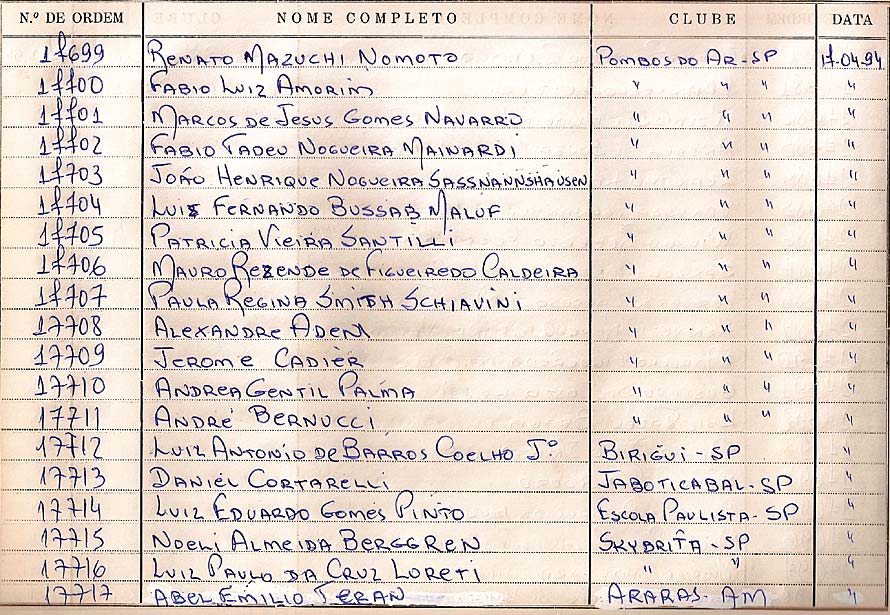 N.º DE ORDEM NOME COMPLETO CLUBE DATA
17699 RENATO MAZUCHI NOMOTO POMBOS DO AR - SP 17.04.94
17700 FABIO LUIZ AMORIM " " " "
17701 MARCOS DE JESUS GOMES NAVARRO " " " "
17702 FABIO TADEU NOGUEIRA MAINARDI " " " "
17703 JOÃO HENRIQUE NOGUEIRA SASSNANNSHAUSEN " " " "
17704 LUIS FERNANDO BUSSAB MALUF " " " "
17705 PATRICIA VIEIRA SANTILLI " " " "
17706 MAURO REZENDE DE FIGUEIREDO CALDEIRA " " " "
17707 PAULA REGINA SMITH SCHIAVINI " " " "
17708 ALEXANDRE ADEM " " " "
17709 JEROME CADIER " " " "
17710 ANDREA GENTIL PALMA " " " "
17711 ANDRÉ BERNUCCI " " " "
17712 LUIZ ANTONIO DE BARROS COELHO Jº. BIRIGUI - SP "
17713 DANIEL CORTARELLI JABOTICABAL - SP "
17714 LUIZ EDUARDO GOMES PINTO ESCOLA PAULISTA - SP "
17715 NOELI ALMEIDA BERGGREN SKYDRIFA - SP "
17716 LUIZ PAULO DA CRUZ LORETI " " "
17717 ABEL EMILIO TERAN ARARAS - AM "